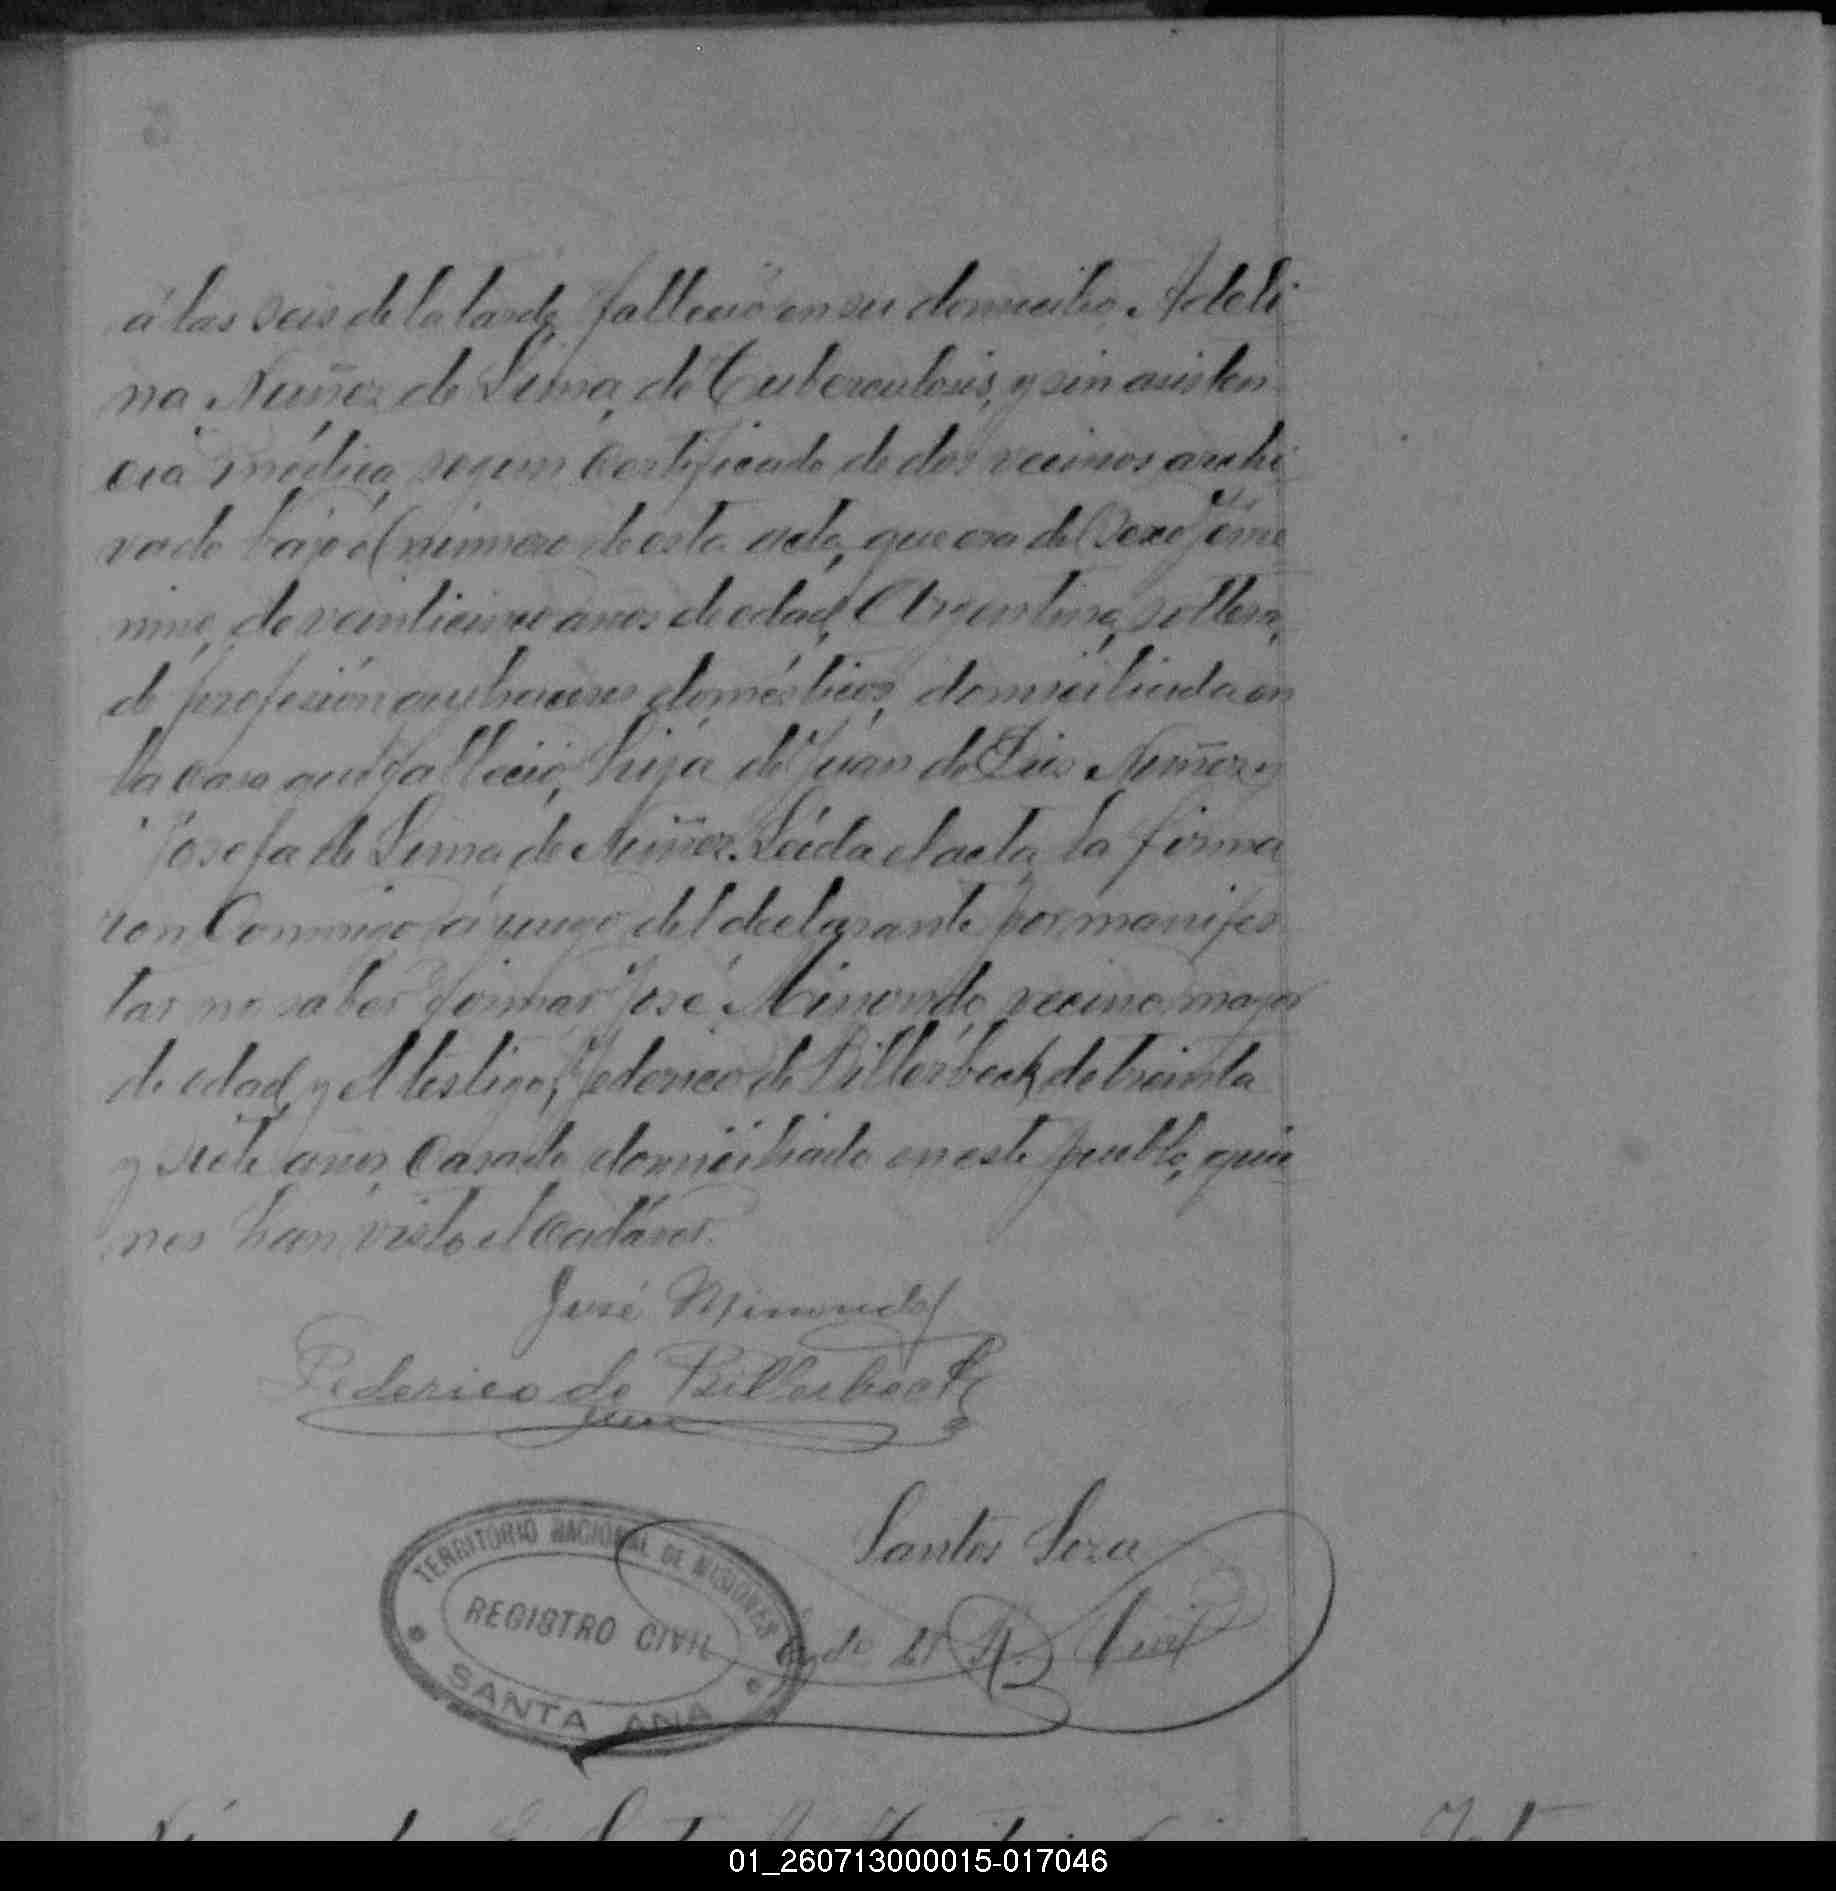 á las seis de la tarde, falleció en su domicilio, Adeli-
na Nuñez de Lima, de Tuberculosis, y sin asisten-
cia médica, segun certificado de dos vecinos archi-
vado bajo el número de esta acta, que era del Sexo feme-
nino, de veinticinco años de edad, Argentina, soltera,
de profesión quehaceres domésticos, domiciliada en
la casa que falleció, hija de Juan de Dios Nuñez y
Josefa de Lima de Nuñez. Leída el acta, la firma-
ron Conmigo á ruego del declarante por manifes-
tar no saber firmar José Minondo, vecino, mayor
de edad, y el testigo, Federico de Billerbeck, de treinta
y siete años, Casado, domiciliado en este pueblo, quie-
nes han visto el cadáver.
José Minondo
Federico de Billerbeck
Santos
TERRITORIO NACIONAL DE MISIONES
REGISTRO CIVIL
SANTA ANA
de del R. Civil
01_260713000015-017046